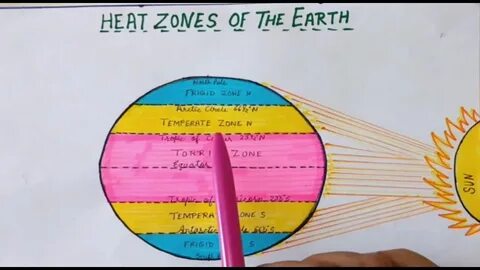 HEAT ZONES OF THE EARTH
North Pole
FRIGID ZONE N
Arctic Circle 66½°N
TEMPERATE ZONE N
Tropic of 23½°N
TORRI ZONE
Equator
Tropic of 23½°S
TEMPERA ZONE S
Antarctic Circle 66½°S
FRIGID S
SUN